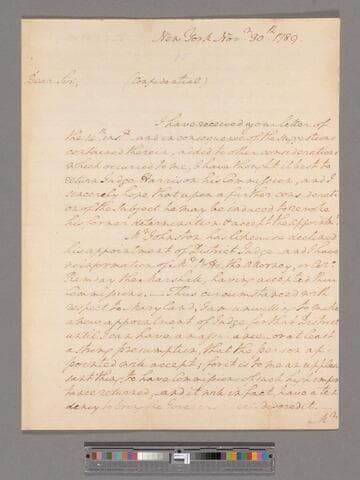 New York Nov.r 30th 1789.
Dear Sir, (Confidential)
I have received your letter of
the 14th inst. and in consequence of the suggestions
contained therein, added to other considerations
which occurred to me, I have thought it best to
return Judge Harrison his Commission, and I
sincerely hope that upon a further considerati-
on of the subject he may be induced to revoke
his former determination & accept the appointmt.
Mr. Johnston has likewise declined
his appointment of District Judge and I have
no information of Mr. Potts the Attorney, or Colo.
Ramsay the Marshall, having accepted their
Commissions. This circumstance with
respect to Maryland, I am unwilling to make
a new appointment of Judge for that District
until I can have a assurance or at least
a strong presumption, that the person ap
pointed will accept; for it is to me an unplea-
sant thing to have Commissions of such high impor
tance returned, and it will in fact, have a ten
dency to bring the Government into discredit.
Mr.